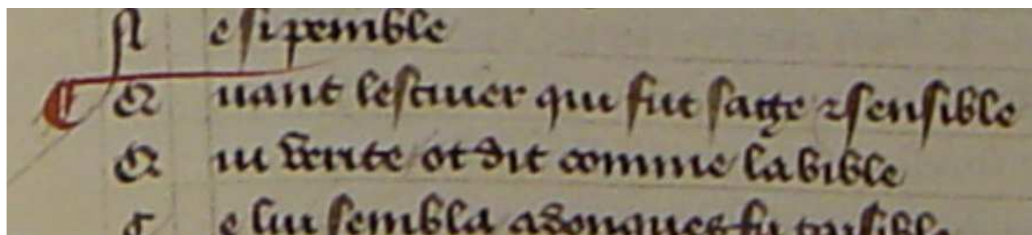 N e si penible
Q uant lescuier qui fut saige ⁊ sensible
Q ui verite ot dit comme la bible
C e lui sembla adonques fu taisible